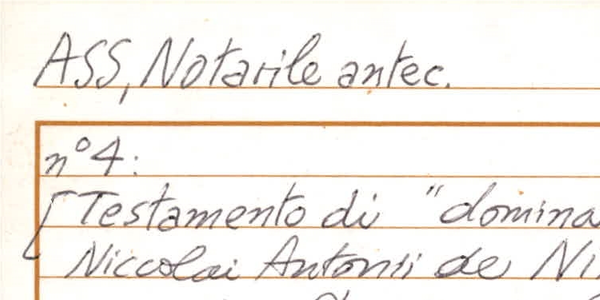 ASS, Notarile antec.
n° 4:
[Testamento di "domina
Niccolai Antonii de Ni